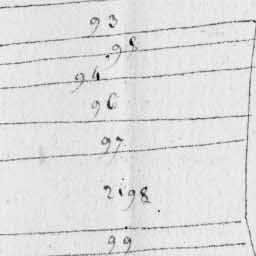 93
98
94
96
97
2198
99